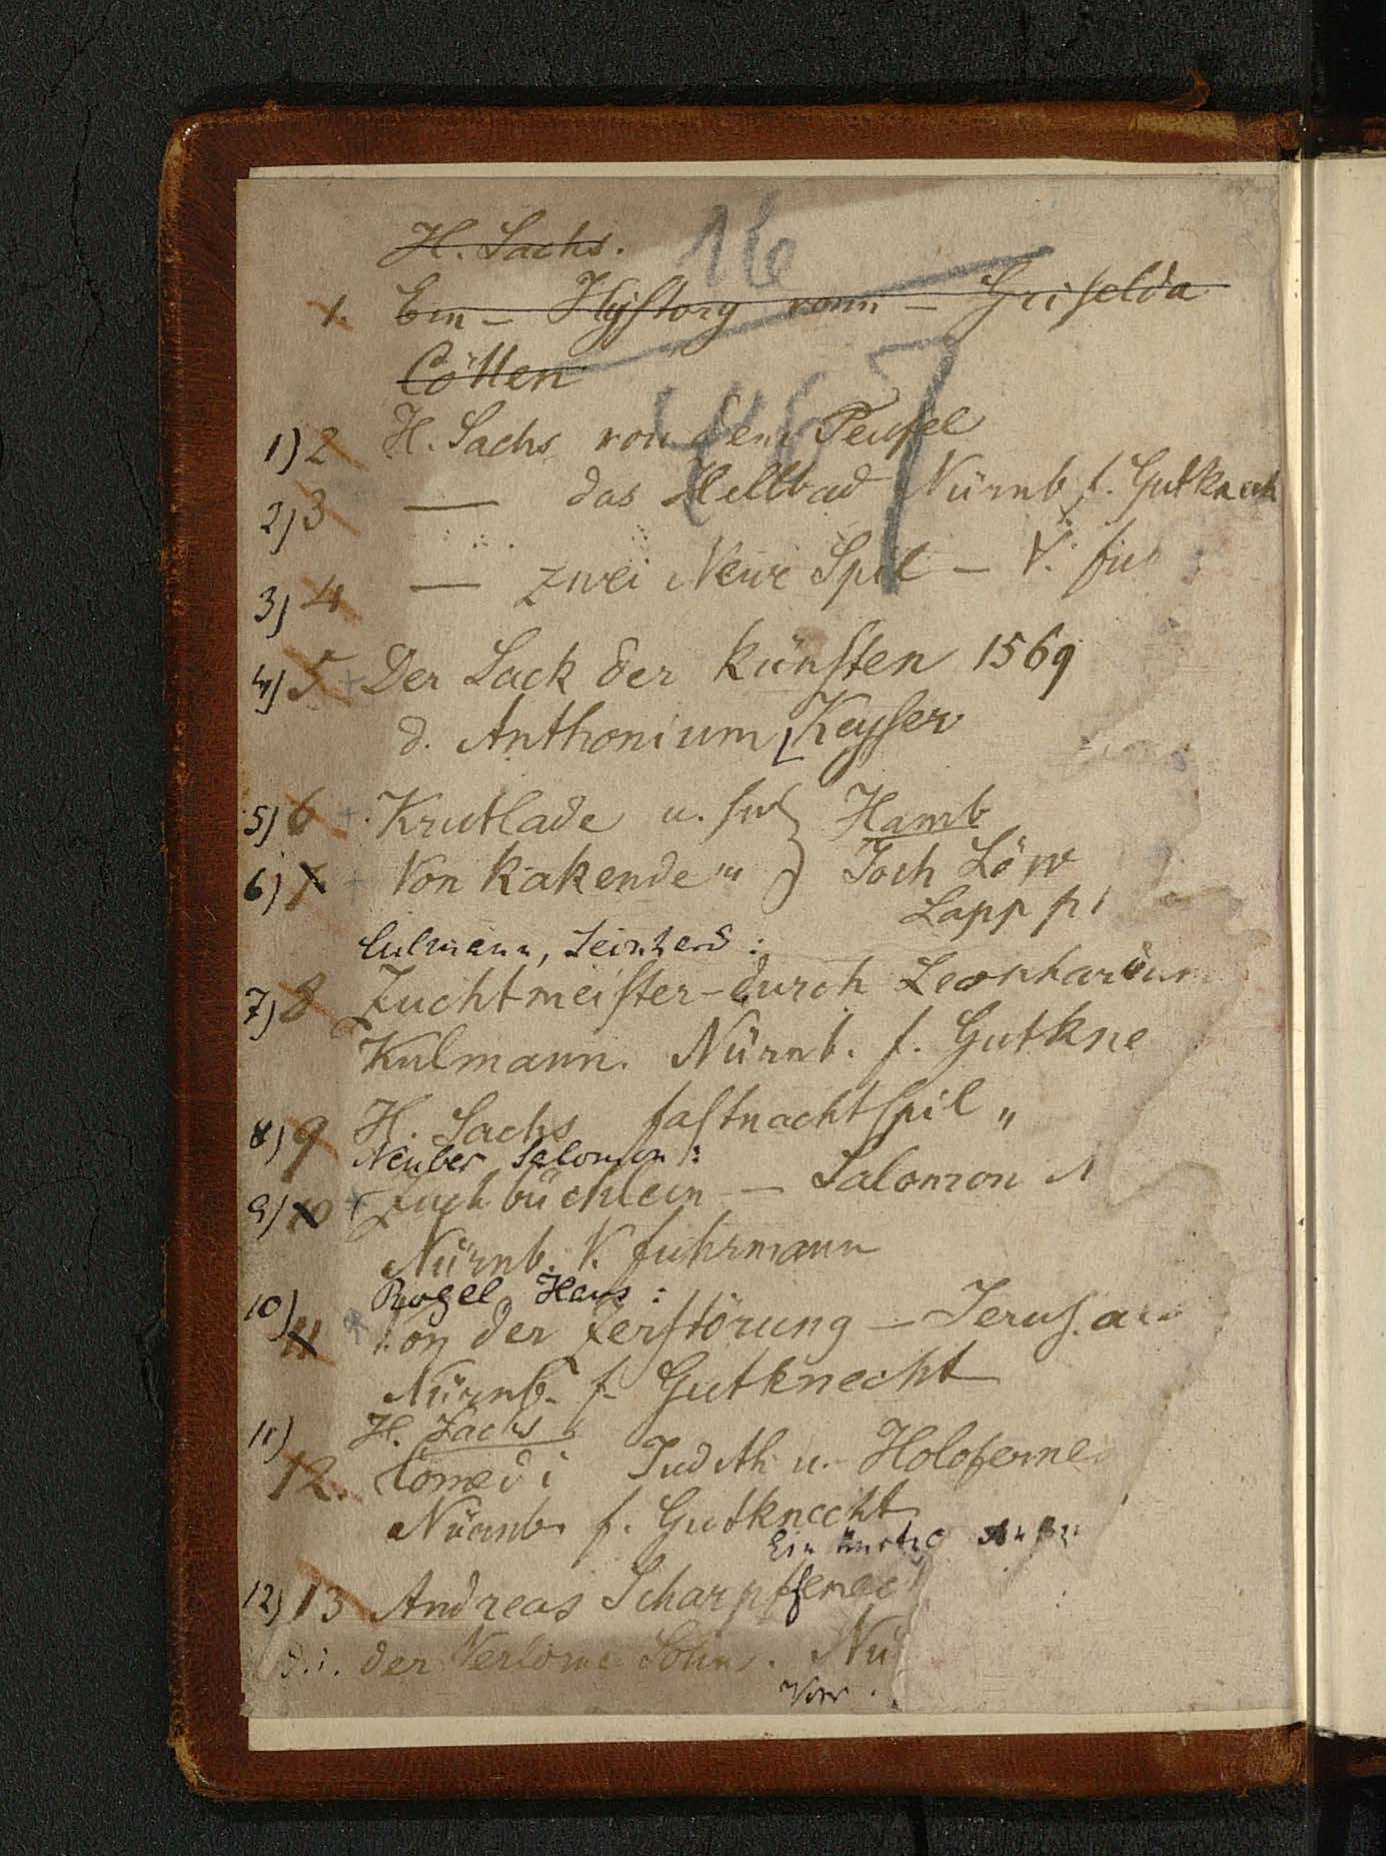 H. Sachs.
16
1. Ein - Hystory vonn - Griselda
Cöllen
467
1) 2 H. Sachs von dem Teufel
2) 3 — das Hellbad Nürnb f. Gutknech
3) 4 — zwei Newe Spil - V. fu
4) 5 + Der Sack der künsten 1569
d. Anthonium Keyser
5) 6 + Krutlade u. Hamb
6) 7 - Von kakende " Joch Löw
Lapp
Culmann, Leinhard:
7) 8 Zuchtmeister - durch Leonhardum
Kulmann. Nürnb. f. Gutkne
8) 9 H. Sachs fastnachtspil "
Neuber Salomon:
9) 10 + Zuchbüchlein — Salomon N
Nürnb. V. fuhrmann
Rogel Hans:
10) 11 + Von der Zerstörung - Jerus.
Nürnb. f. Gutknecht
H. Sachs
11) 12. Comedi Judith u. Holoferne
Nürnb. f. Gutknecht
Ein
12) 13 Andreas Scharpffenec
d. i. der Verlorne Sohn. Nü
Vor.